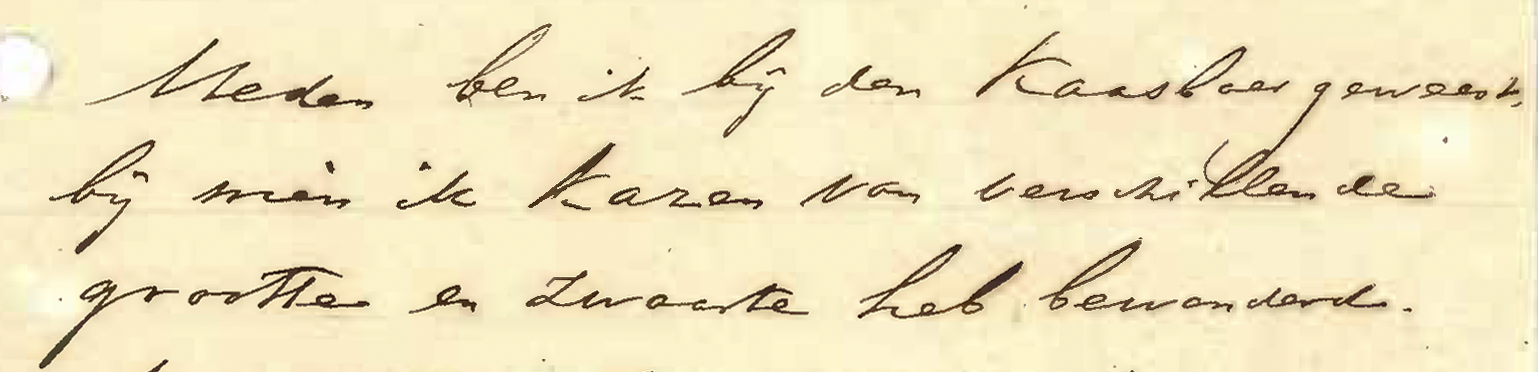 Heden ben ik bij den Kaasboer geweest,
bij wien ik Kazen van verschillende
grootte en zwaarte heb bewonderd.